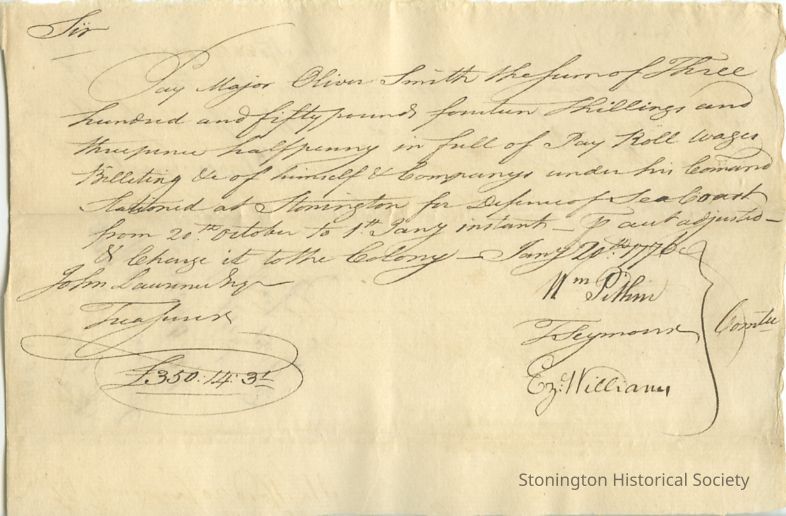 Sir
Pay Major Oliver Smith the sum of Three
hundred and fifty pounds fourteen Shillings and
three pence halfpenny in full of Pay Roll wages
Billeting &c of himself & Companys under his Comand
Stationed at Stonington for Defence of Sea Coast
from 20th October to 1st Jany instant — p acct adjusted —
& Charge it to the Colony — Jany 20th 1776
John Lawrence Esqr
Treasurer
£350.14.3½
Wm Pitkin
T Seymour
Ez. Williams
Comtee
Stonington Historical Society